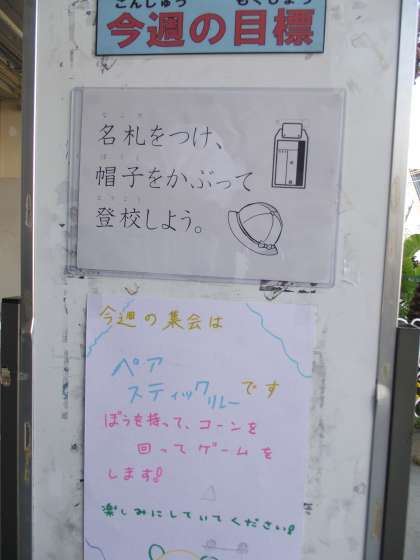 こんしゅう もくひょう
今週の目標
名札をつけ、
帽子をかぶって
登校しよう。
今週の集会は
ペア
スティックリレーです
ぼうを持って、コーンを
回ってゲームを
します!
楽しみにしていてください!